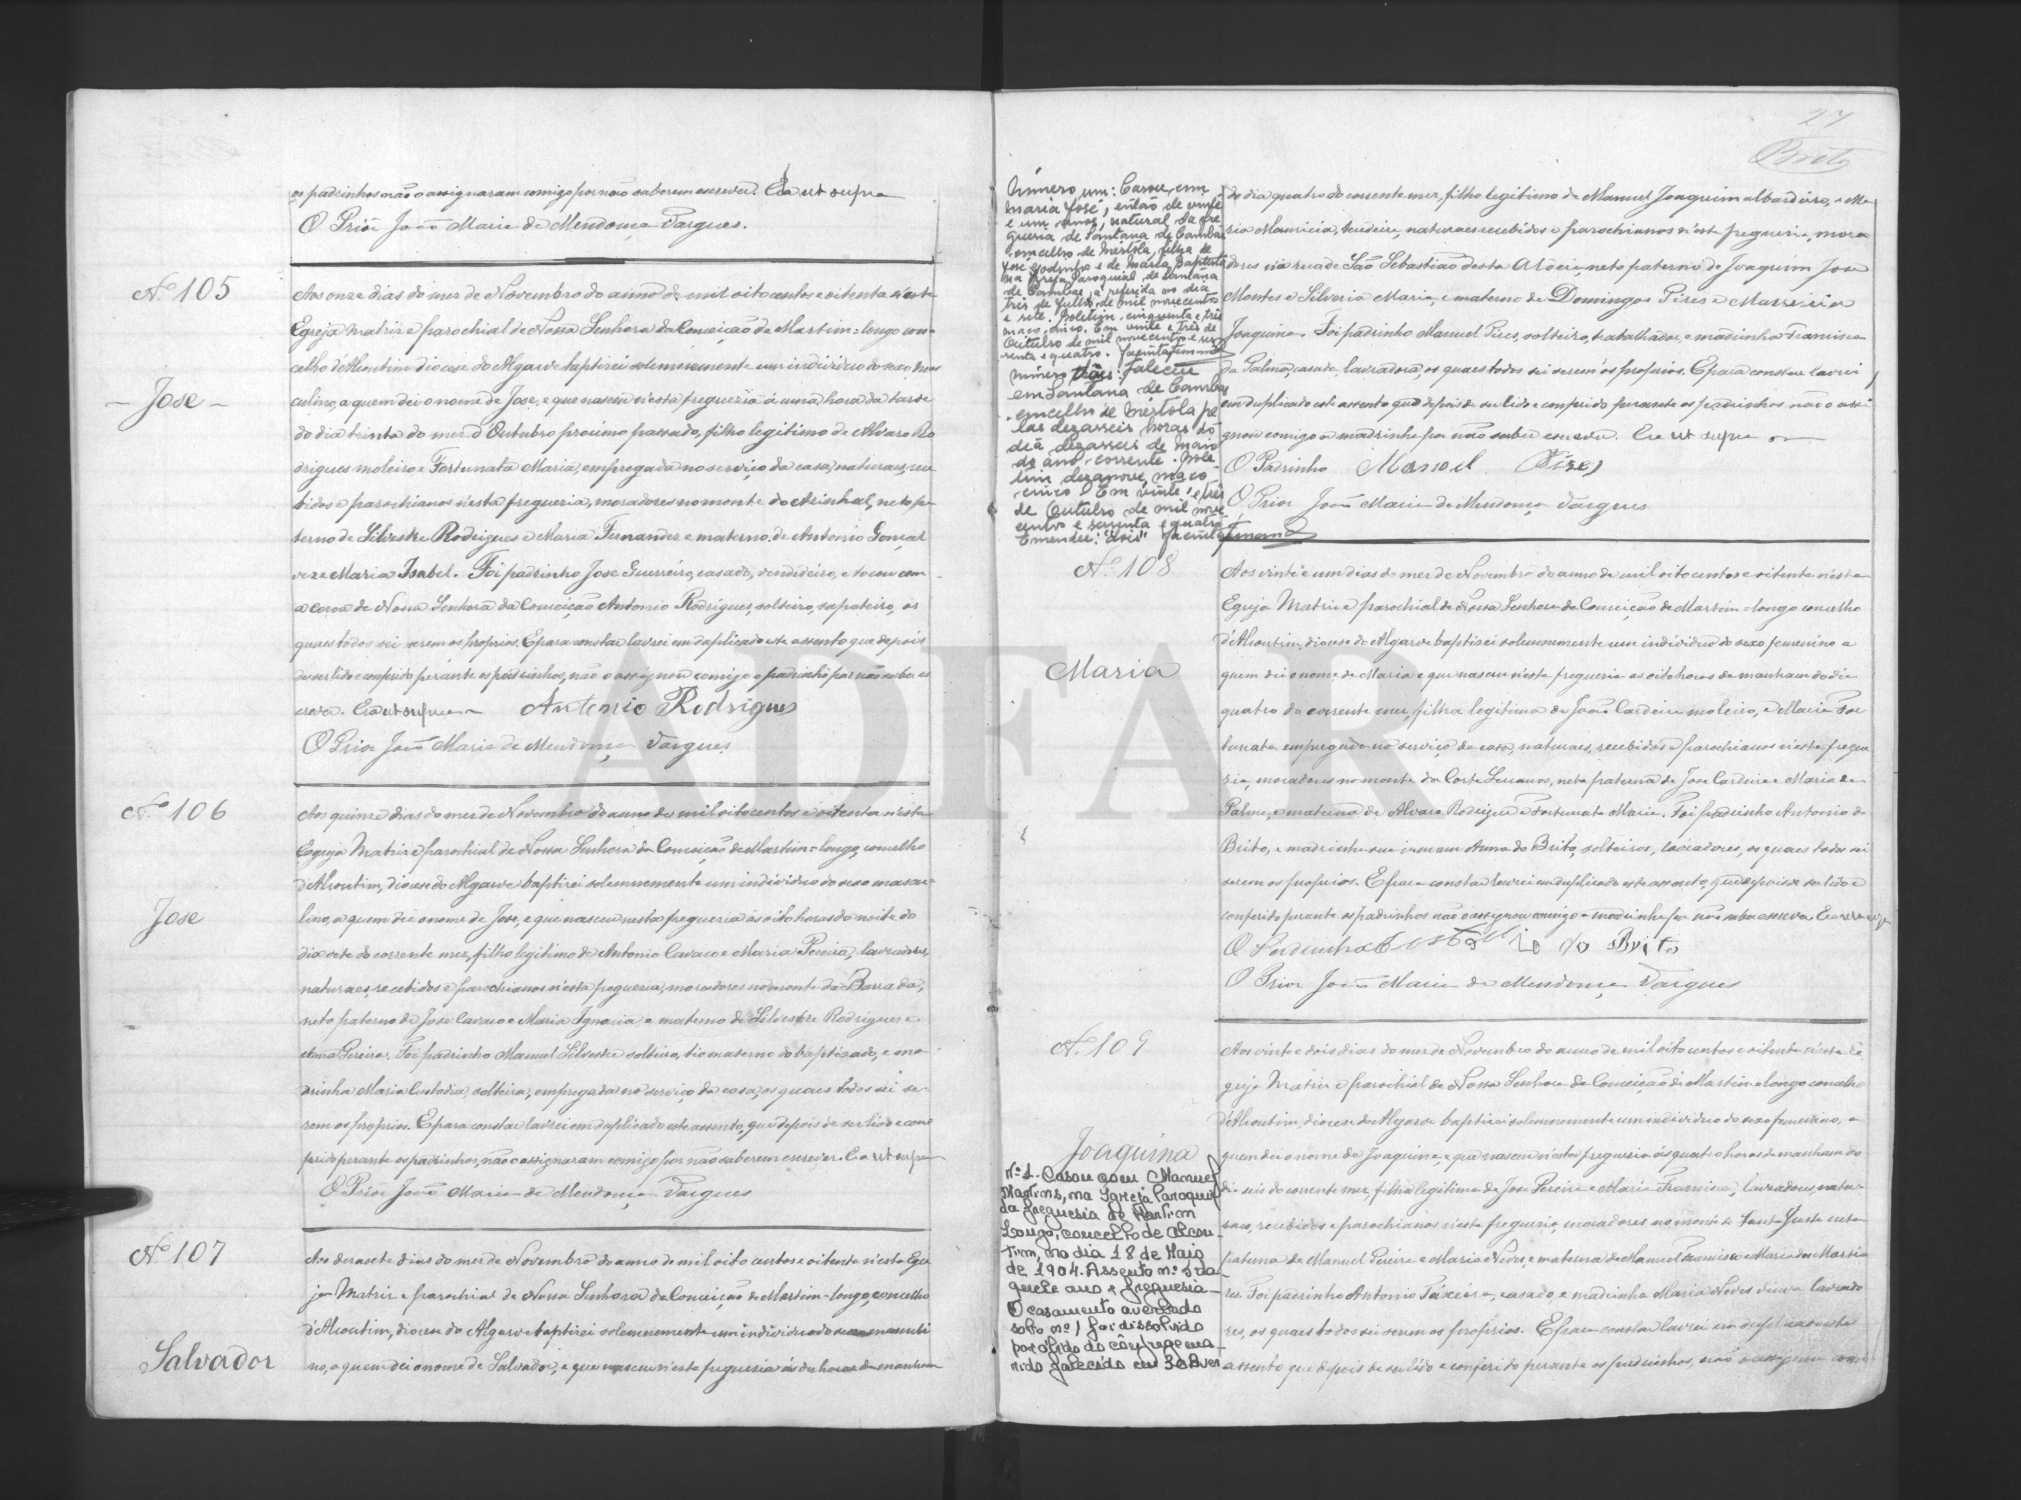 os padrinhos não o assignaram comigo por não saberem escrever. Era ut supra
O Prior João Maria de Mendonça Vargues.
Nº 105
José
Aos onze dias do mez de Novembro do anno de mil oitocentos e oitenta n'esta
Egreja Matriz e parochial de Nossa Senhora da Conceição de Martim=longo con-
celho d'Alcoutim diocese do Algarve baptisei solemnemente um individuo do sexo mas
culino, a quem dei o nome de José, e que nasceu n'esta freguezia á uma hora da tarde
do dia trinta do mez d'Outubro proximo passado, filho legitimo de Alvaro Ro
drigues moleiro e Fortunata Maria, empregada no serviço da casa, naturaes, rece
bidos e parochianos n'esta freguezia, moradores no monte do Azinhal, neto pa
terno de Silvestre Rodrigues e Maria Fernandes e materno de Antonio Gonçal
vez e Maria Isabel. Foi padrinho José Guerreiro, casado, vendedeiro, e tocou com
a coroa de Nossa Senhora da Conceição Antonio Rodrigues, solteiro, sapateiro, os
quaes todos sei serem os proprios. E para constar lavrei em duplicado este assento que depois
de ser lido e conferido perante os padrinhos, não o assignou comigo o padrinho por não saber es
crever. Era ut supra Antonio Rodrigues
O Prior João Maria de Mendonça Vargues
Nº 106
José
Aos quinze dias do mez de Novembro do anno de mil oitocentos e oitenta n'esta
Egreja Matriz e parochial de Nossa Senhora da Conceição de Martim=longo, concelho
d'Alcoutim, diocese do Algarve baptisei solemnemente um individuo do sexo mascu-
lino, a quem dei o nome de José, e que nasceu n'esta freguezia ás oito horas da noite do
dia sete do corrente mez, filho legitimo de Antonio Cavaco e Maria Pereira, lavradores,
naturaes, recebidos e parochianos n'esta freguezia, moradores no monte da Barrada,
neto paterno de José Cavaco e Maria Ignacia e materno de Silvestre Rodrigues e
Anna Pereira. Foi padrinho Manuel Silvestre solteiro, tio materno do baptizado, e ma-
drinha Maria Custodia, solteira, empregada no serviço da casa, os quaes todos sei se-
rem os proprios. E para constar lavrei em duplicado este assento, que depois de ser lido e con
ferido perante os padrinhos, não o assignaram comigo por não saberem escrever. Era ut supra
O Prior João Maria de Mendonça Vargues
Nº 107
Salvador
Aos dezasete dias do mez de Novembro do anno de mil oito centos e oitenta n'esta Egre
ja Matriz e parochial de Nossa Senhora da Conceição de Martim-longo, concelho
d'Alcoutim, diocese do Algarve baptisei solemnemente um individuo do sexo masculi
no, a quem dei o nome de Salvador, e que nasceu n'esta freguezia ás dez horas da manham
27
Brito
do dia quatro do corrente mez, filho legitimo de Manuel Joaquim albardeiro, e Ma
ria Mauricia, tecedeira, naturaes recebidos e parochianos n'esta freguezia, mora
dores na rua de São Sebastião desta Aldeia, neto paterno de Joaquim José
Montes e Silveria Maria, e materno de Domingos Pires e Mauricia
Joaquina. Foi padrinho Manuel Pires, solteiro, trabalhador, e madrinha Francisca
da Palma, casada, lavradora, os quaes todos sei serem os proprios. E para constar lavrei
em duplicado este assento que depois de ser lido e conferido perante os padrinhos não o assi
gnou comigo a madrinha por não saber escrever. Era ut supra
O Padrinho Manoel Pires
O Prior João Maria de Mendonça Vargues
Número um: Casou com
Maria José, então de vinte
e um anos, natural da fre
guesia de Santana de Cambas
concelho de Mértola, filha de
José Godinho e de Maria Baptista
na Igreja Paroquial de Santana
de Cambas, a referida no dia
três de Julho de mil novecentos
e sete. Boletim cinquenta e três
maço cinco. Em vinte e três de
Outubro de mil novecentos e ses
senta e quatro.
Número dois: Faleceu
em Santana de Cambas
concelho de Mértola pe
las dezasseis horas do
dia dezasseis de Maio
do ano corrente. Bole
tim dezanove, maço
cinco. Em vinte e três
de Outubro de mil nove
centos e sessenta e quatro
Emendei: "dois"
Nº 108
Maria
Aos vinte e um dias do mez de Novembro do anno de mil oito centos e oitenta n'esta
Egreja Matriz e parochial de Nossa Senhora da Conceição de Martim-longo concelho
d'Alcoutim, diocese do Algarve baptisei solemnemente um individuo do sexo femenino a
quem dei o nome de Maria e que nasceu n'esta freguezia as oito horas da manham do dia
quatro do corrente mez, filha legitima de João Cardeira moleiro, e Maria For
tunata empregada no serviço da casa, naturaes, recebidos e parochianos n'esta fregue
zia, moradores no monte da Corte Serrano, neta paterna de José Cardeira e Maria da
Palma, e materna de Alvaro Rodrigues e Fortunata Maria. Foi padrinho Antonio de
Brito, e madrinha sua irmam Anna de Brito, solteiros, lavradores, os quaes todos sei
serem os proprios. E para constar lavrei em duplicado este assento, que depois de ser lido e
conferido perante os padrinhos não o assignou comigo a madrinha por não saber escrever. Era ut supra
O Padrinho Antonio do Brito
O Prior João Maria de Mendonça Vargues
Nº 109
Joaquina
Aos vinte e dois dias do mez de Novembro do anno de mil oito centos e oitenta n'esta E
greja Matriz e parochial de Nossa Senhora da Conceição de Martim-longo concelho
d'Alcoutim, diocese do Algarve baptisei solemnemente um individuo do sexo femenino, a
quem dei o nome de Joaquina, e que nasceu n'esta freguezia ás quatro horas da manham do
dia seis do corrente mez, filha legitima de José Pereira e Maria Francisca, lavradores, natu-
raes, recebidos e parochianos n'esta freguezia, moradores no monte de Santa Justa neta
paterna de Manuel Pereira e Maria Neves, e materna de Manuel Francisco e Maria dos Marti
res. Foi padrinho Antonio Teixeira, casado, e madrinha Maria Neves viuva lavrado
res, os quaes todos sei serem os proprios. E para constar lavrei em duplicado este
assento que depois de ser lido e conferido perante os padrinhos, não o assignam comi
Nº 1. Casou com Manuel
Martins, na Igreja Paroquial
da freguesia de Martim
Longo, concelho de Alcou-
tim, no dia 18 de Maio
de 1904. Assento nº 5 da
quele ano e freguesia
O casamento averbado
sob o nº 1 foi dissolvido
por óbito do cônjuge ma-
rido falecido em 30
ADFAR